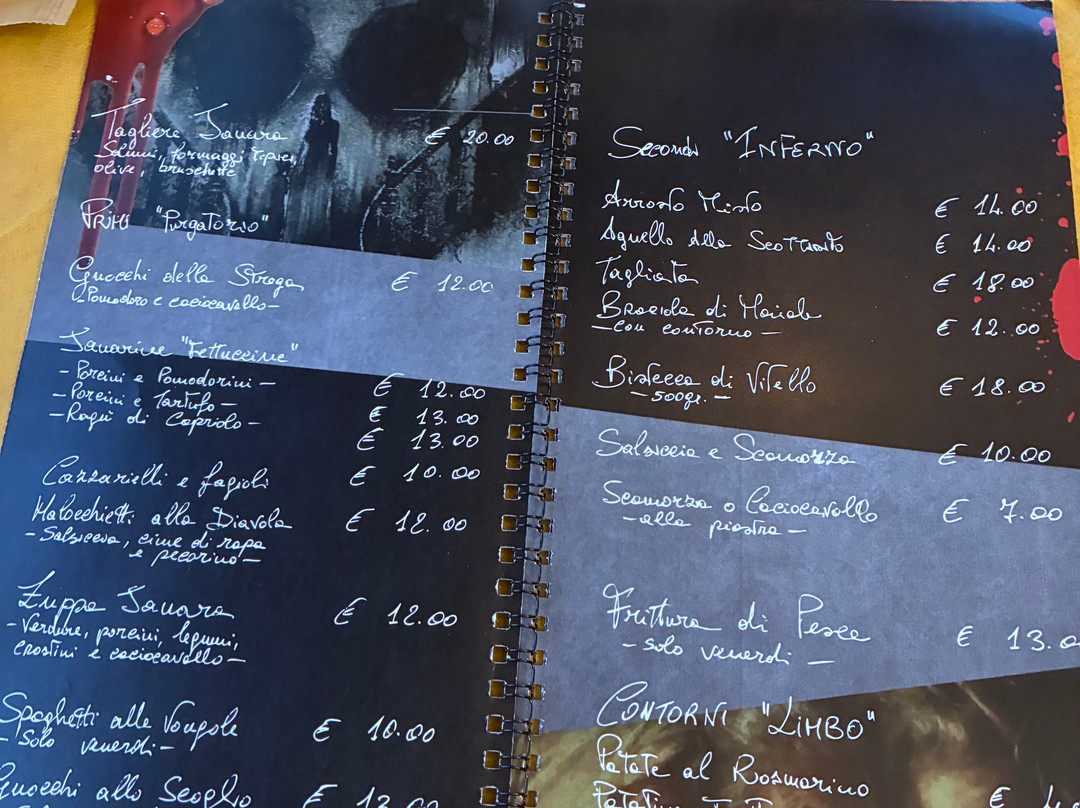 Tagliere Janara € 20.00
Salumi, formaggi tipici,
olive, bruschette
PRIMI "PurgaTorio"
Gnocchi della Strega € 12.00
- Pomodoro e caciocavallo -
Janarine "Fettuccine"
- Porcini e Pomodorini - € 12.00
- Porcini e Tartufo - € 13.00
- Ragù di Capriolo - € 13.00
Cazzarielli e fagioli € 10.00
Malocchietti alla Diavola € 12.00
- Salsiccia, cime di rapa
e pecorino -
Zuppa Janara € 12.00
- Verdure, porcini, legumi,
crostini e caciocavallo -
Spaghetti alle Vongole € 10.00
- Solo venerdì -
Gnocchi allo Scoglio € 12.00
Secondi "INFERNO"
Arrosto Misto € 14.00
Agnello allo Scottadito € 14.00
Tagliata € 18.00
Braciola di Maiale € 12.00
- con contorno -
Bistecca di Vitello € 18.00
- 500gr. -
Salsiccia e Scamorza € 10.00
Scamorza o Caciocavallo € 7.00
- alla piastra -
Frittura di Pesce € 13.0
- solo venerdì -
CONTORNI "LIMBO"
Patate al Rosmarino €